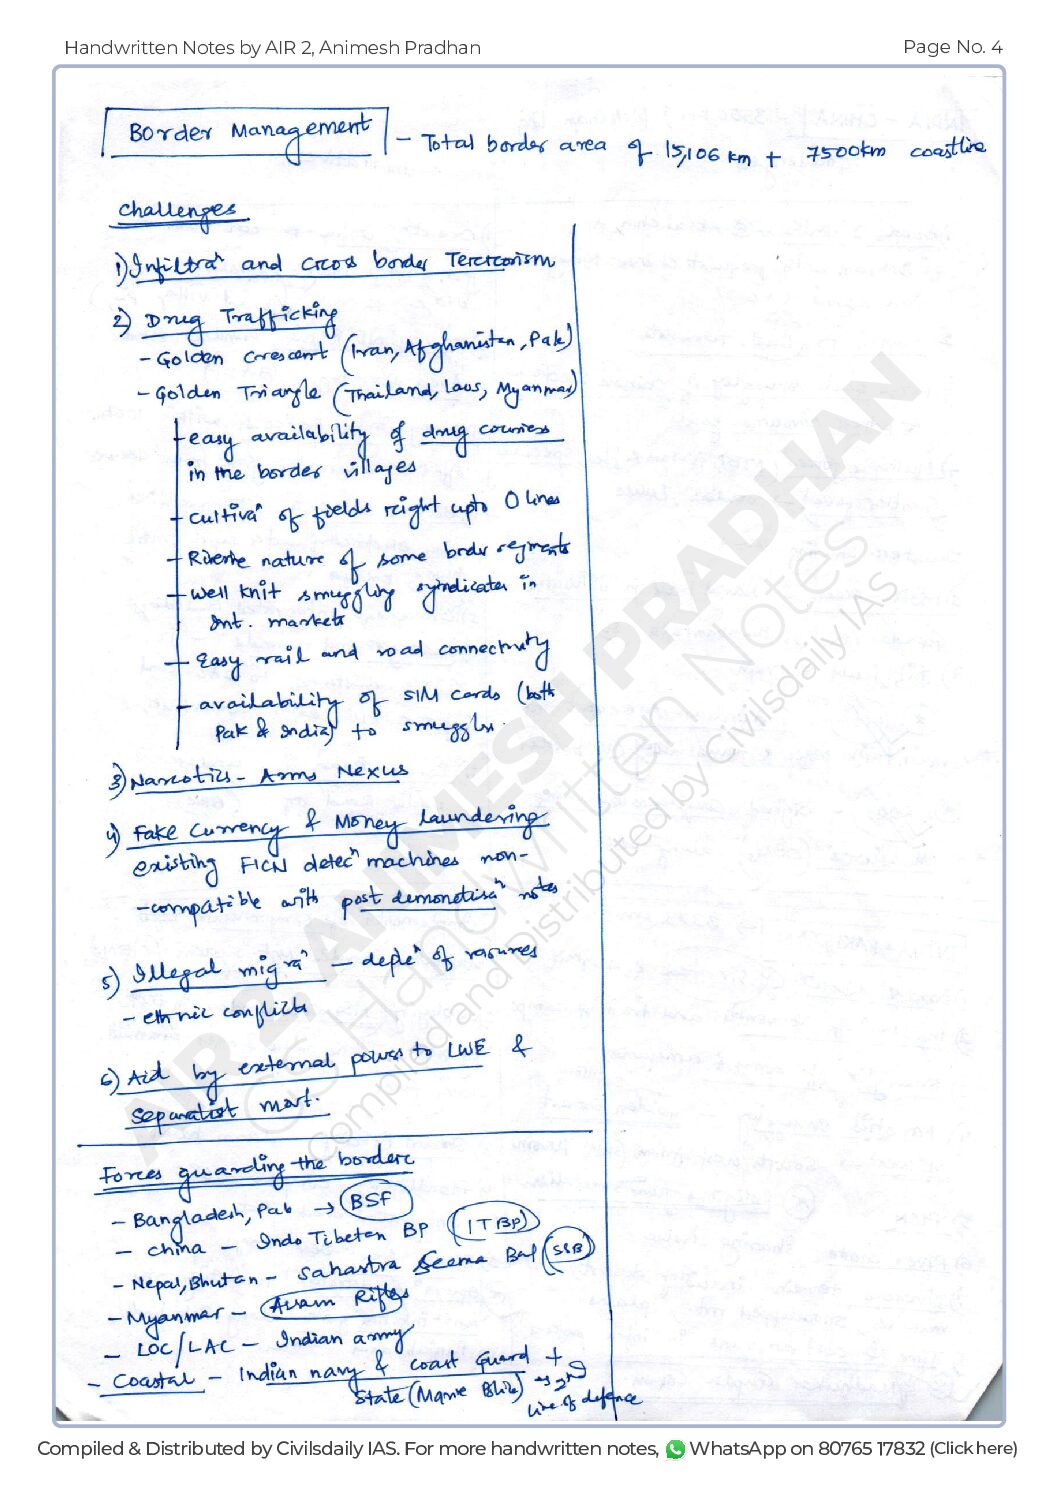 Handwritten Notes by AIR 2, Animesh Pradhan
Page No. 4
Border Management - Total border area of 15,106 km + 7500km coastline
Challenges
1) Infiltraⁿ and cross border Terrorism
2) Drug Trafficking
- Golden Crescent (Iran, Afghanistan, Pak)
- Golden Triangle (Thailand, Laos, Myanmar)
- easy availability of drug couriers
in the border villages
- cultivaⁿ of fields right upto 0 lines
- Riverine nature of some border segments
- well knit smuggling syndicates in
Int. markets
- Easy rail and road connectivity
- availability of SIM cards (both
Pak & India) to smugglers.
3) Narcotics - Arms Nexus
4) Fake Currency & Money Laundering
existing FICN detecⁿ machines non-
-compatible with post demonetisaⁿ notes
5) Illegal migraⁿ - depleⁿ of resources
- ethnic conflicts
6) Aid by external powers to LWE &
separatist mvmt.
Forces guarding the border
- Bangladesh, Pak → BSF
- China - Indo Tibetan BP (ITBP)
- Nepal, Bhutan - Sahastra Seema Bal (SSB)
- Myanmar - Assam Rifles
- LOC/LAC - Indian army
- Coastal - Indian navy & coast Guard +
State (Marine Police) → 2nd
line of defence
AIR 2, ANIMESH PRADHAN
CS Handwritten Notes
Compiled and Distributed by Civilsdaily IAS
Compiled & Distributed by Civilsdaily IAS. For more handwritten notes, WhatsApp on 80765 17832 (Click here)